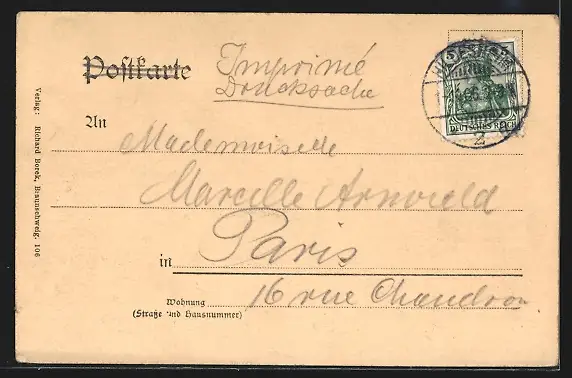 Postkarte
Imprimé
Drucksache
DEUTSCHES REICH
2
An
Mademoiselle
Marcelle
Paris
in
16 rue
Wohnung
(Straße und Hausnummer)
Verlag: Richard Borek, Braunschweig. 106